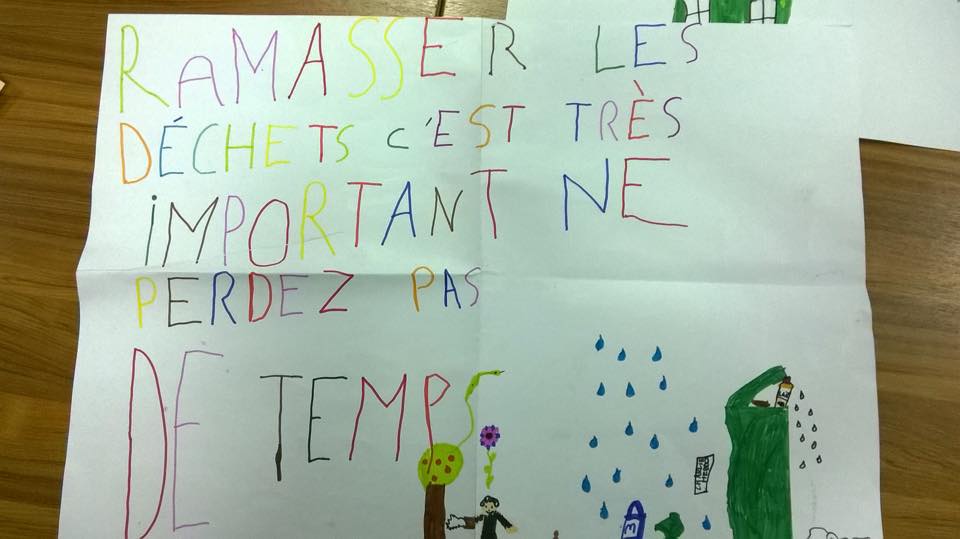 RAMASSER LES
DÉCHETS C'EST TRÈS
iMPORTANT NE
PERDEZ PAS
DE TEMPS